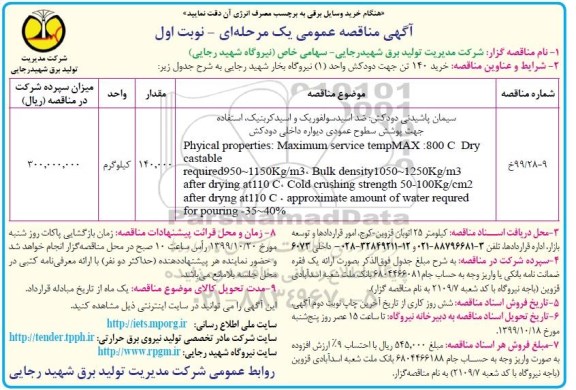 «هنگام خرید وسایل برقی به برچسب مصرف انرژی آن دقت نمایید»
آگهی مناقصه عمومی یک مرحله‌ای - نوبت اول
شرکت مدیریت
تولید برق شهیدرجایی
۱- نام مناقصه گزار: شرکت مدیریت تولید برق شهیدرجایی- سهامی خاص (نیروگاه شهید رجایی)
۲- شرایط و عناوین مناقصه: خرید ۱۴۰ تن جهت دودکش واحد (۱) نیروگاه بخار شهید رجایی به شرح جدول زیر:
شماره مناقصه
موضوع مناقصه
مقدار
واحد
میزان سپرده شرکت در مناقصه (ریال)
۹۹/۲۸-۹خ
سیمان پاشیدنی دودکش، ضد اسیدسولفوریک و اسیدکربنیک، استفاده
جهت پوشش سطوح عمودی دیواره داخلی دودکش
Phyical properties: Maximum service tempMAX :800 C Dry
castable
required950~1150Kg/m3، Bulk density1050~1250Kg/m3
after drying at110 C، Cold crushing strength 50-100Kg/cm2
after dryng at110 C ، approximate amount of water requred
for pouring -35~40%
۱۴۰,۰۰۰
کیلوگرم
۳۰۰,۰۰۰,۰۰۰
۳- محل دریافت اسناد مناقصه: کیلومتر ۲۵ اتوبان قزوین-کرج، امور قراردادها و توسعه
بازار، اداره قراردادها، تلفن ۳-۸۸۷۹۶۶۸۱-۰۲۱ و ۱۲-۳۲۸۴۹۲۱۱-۰۲۸ داخلی ۶۰۷۳
۴- سپرده شرکت در مناقصه: به شرح مبلغ جدول فوق‌الذکر بصورت ارائه یک فقره
ضمانت نامه بانکی یا واریز وجه به حساب جام ۶۸۰۴۴۶۶۰۸۱ بانک ملت شعبه اسدآبادی
قزوین (باجه نیروگاه با کد شعبه ۲۱۰۹/۷ به نام مناقصه گزار).
۵- تاریخ فروش اسناد مناقصه: شش روز کاری از تاریخ آخرین چاپ نوبت دوم آگهی.
۶- تاریخ تحویل اسناد مناقصه به دبیرخانه نیروگاه: تا ساعت ۱۵ عصر روز پنج‌شنبه
مورخ ۱۳۹۹/۱۰/۱۸
۷- مبلغ فروش هر اسناد مناقصه: مبلغ ۵۴۵,۰۰۰ ریال با احتساب ۹٪ ارزش افزوده
به صورت واریز وجه به حساب جام ۶۸۰۴۴۶۶۱۸۸ بانک ملت شعبه اسدآبادی قزوین
(باجه نیروگاه با کد شعبه ۲۱۰۹/۷) به نام مناقصه گزار.
۸- زمان و محل قرائت پیشنهادات مناقصه: زمان بازگشایی پاکات روز شنبه
مورخ ۱۳۹۹/۱۰/۲۰ رأس ساعت ۱۰ صبح در محل مناقصه‌گزار انجام خواهد شد
و حضور نماینده هر پیشنهاددهنده (حداکثر دو نفر) با ارائه معرفی‌نامه کتبی در
محل جلسه بلامانع می‌باشد.
۹- مدت تحویل کالای موضوع مناقصه: یک ماه از تاریخ مبادله قرارداد.
این آگهی را می توانید در سایت اینترنتی ذیل مشاهده کنید.
سایت ملی اطلاع رسانی: http://iets.mporg.ir
سایت شرکت مادر تخصصی تولید نیروی برق حرارتی: http://tender.tpph.ir
سایت نیروگاه شهید رجایی: http://www.rpgm.ir
روابط عمومی شرکت مدیریت تولید برق شهید رجایی